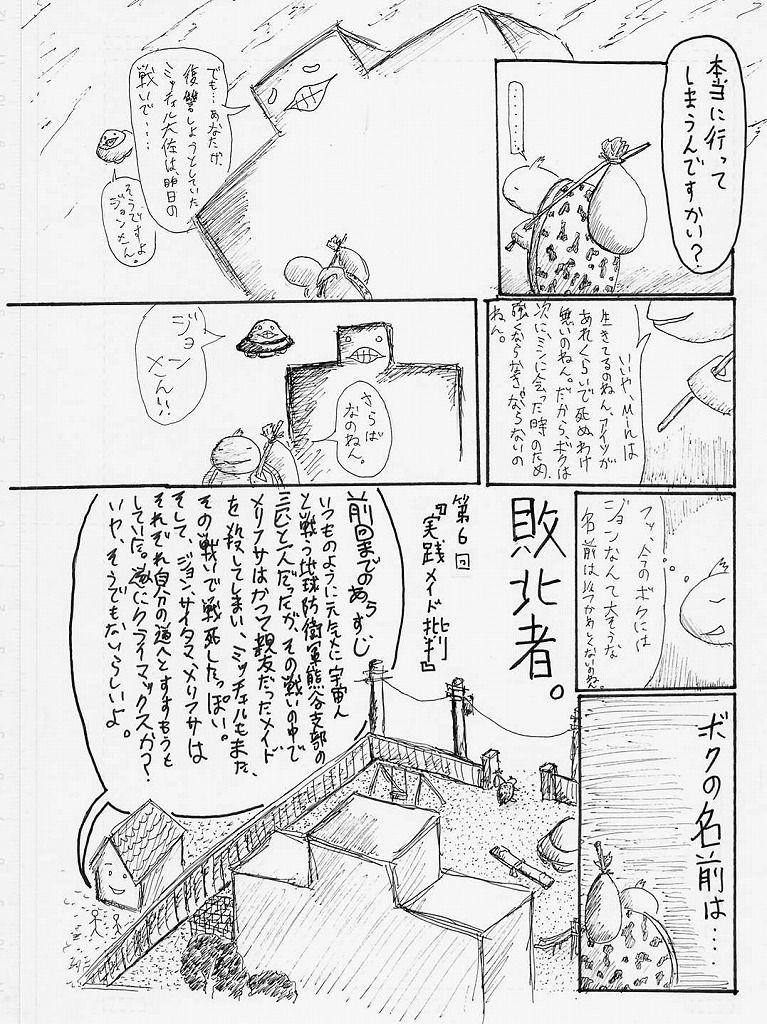 本当に行って
しまうんですかい?
………
でも…あなたが、
復讐しようとしていた
ミッチェル大佐は、昨日の
戦いで・・・
そうですよ
ジョンさん。
いいや、Mr.ﾐﾙは
生きてるのねん、アイツが
あれくらいで死ぬわけ
無いのねん。だから、ボクは
次に、ミンに会った時のため、
強くならなきゃならないの
ねん。
さらば
なのねん。
ジョン
さん!!
フッ、今のボクには
ジョンなんて大そうな
名前は
ボクの名前は…
敗北者。
第6回
『実践メイド批判』
前回までのあらすじ
いつものように元気に宇宙人
と戦う地球防衛軍熊谷支部の
三匹と一人だったが、その戦いの中で
メリフサはかつて親友だったメイド
を殺してしまい、ミッチェルもまた、
その戦いで戦死したっぽい。
そして、ジョン、サイタマ、メリフサは
それぞれ自分の道へとすすもうと
していた。遂にクライマックスか??
いや、そうでもないらしいよ。